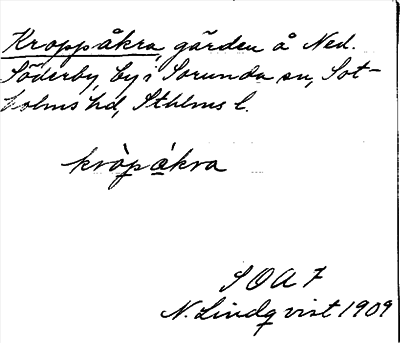 Kroppåkra, gärden å Ned.
Söderby, by i Sorunda sn, Sot-
holms hd, Sthlms l.
kròpákra
S O A 7
N. Lindqvist 1909